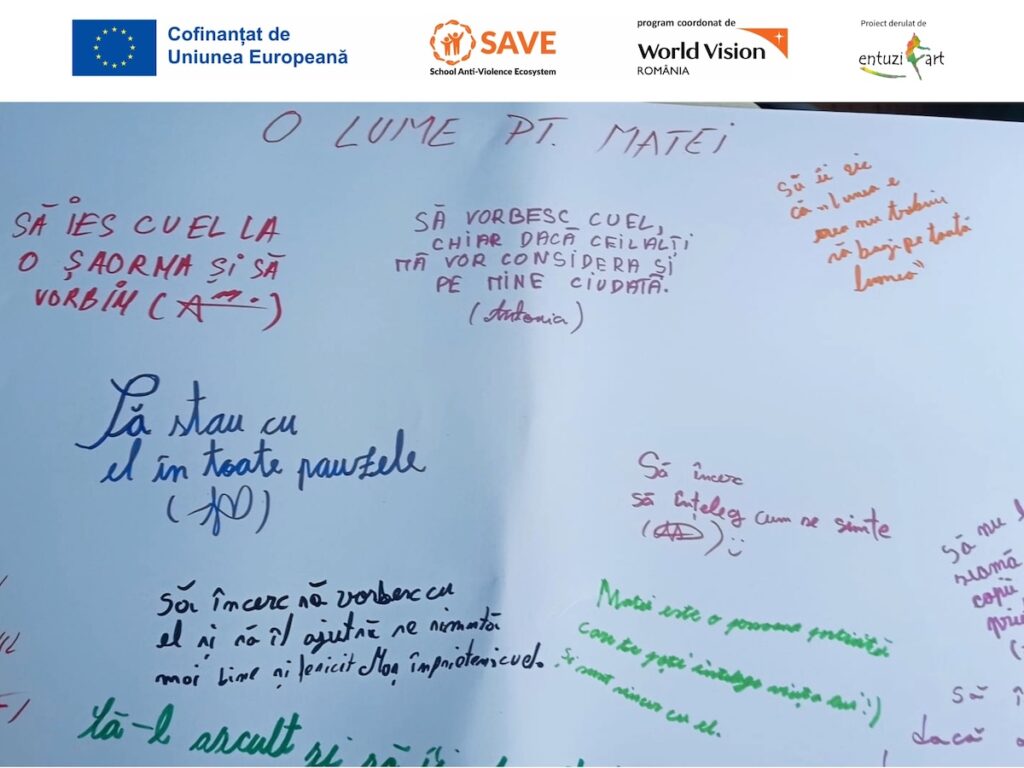 Cofinanțat de
Uniunea Europeană
SAVE
School Anti-Violence Ecosystem
program coordonat de
World Vision
ROMÂNIA
Proiect derulat de
entuziart
O LUME PT. MATEI
SĂ IES CU EL LA
O ȘAORMA ȘI SĂ
VORBIM
SĂ VORBESC CU EL,
CHIAR DACĂ CEILALȚI
MĂ VOR CONSIDERA ȘI
PE MINE CIUDATĂ.
(Antonia)
Să îi zic
că "lumea e
rea nu trebuie
să bagi pe toată
lumea"
Să stau cu
el în toate pauzele
Să încerc
să înțeleg cum se simte
:)
Să încerc să vorbesc cu
el și să îl ajut să se simtă
mai bine și fericit
cu el.
Matei este o persoana potrivită
viața lui :)
și sunt sincer cu el.
Să nu
seamă
copii
Să-l ascult și să îi
să
dacă